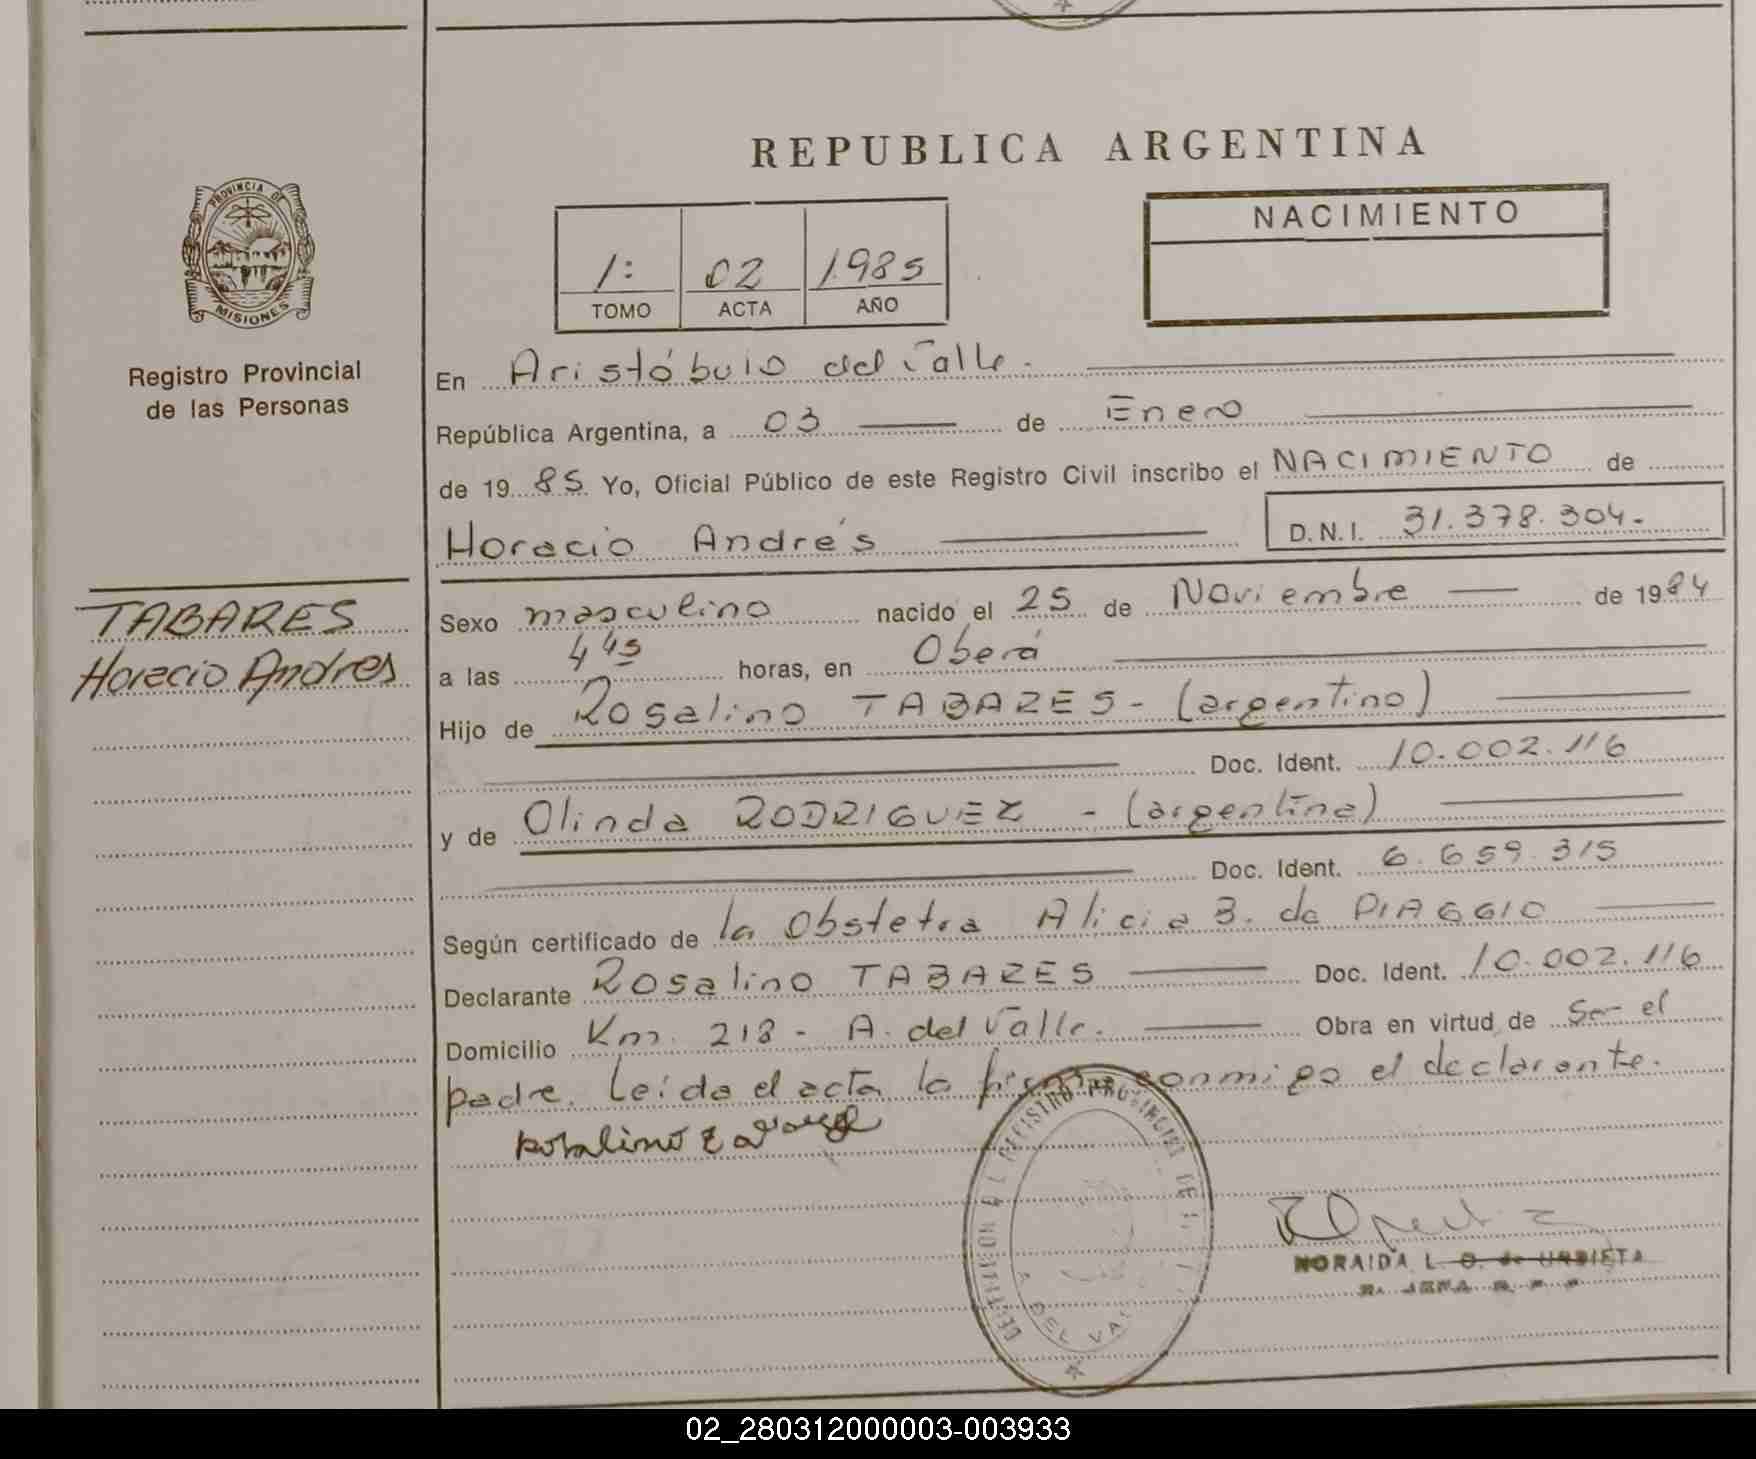 REPUBLICA ARGENTINA
PROVINCIA DE
MISIONES
Registro Provincial
de las Personas
1: 02 1985
TOMO ACTA AÑO
NACIMIENTO
En Aristóbulo del Valle.
República Argentina, a 03 de Enero
de 19 85 Yo, Oficial Público de este Registro Civil inscribo el NACIMIENTO de
Horacio Andrés D.N.I. 31.378.304.
TABARES
Horacio Andres
Sexo masculino nacido el 25 de Noviembre de 1984
a las 4 45 horas, en Oberá
Hijo de Rosalino TABARES - (argentino)
Doc. Ident. 10.002.116
y de Olinda RODRIGUEZ - (argentina)
Doc. Ident. 6.659.315
Según certificado de la Obstetra Alicia B. de PIAGGIO
Declarante Rosalino TABARES Doc. Ident. 10.002.116
Domicilio Km. 218 - A. del Valle. Obra en virtud de Ser el
padre. Leída el acta la firma conmigo el declarante.
Rosalino
REGISTRO PROVINCIAL DE
DEL VAL
NORAIDA L. O. de URBIETA
02_280312000003-003933